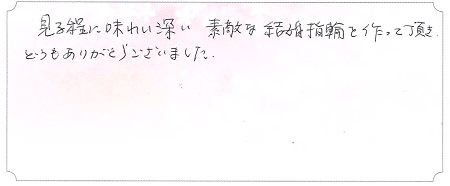 見る程に味わい深い 素敵な結婚指輪を作って頂き、
どうもありがとうございました。